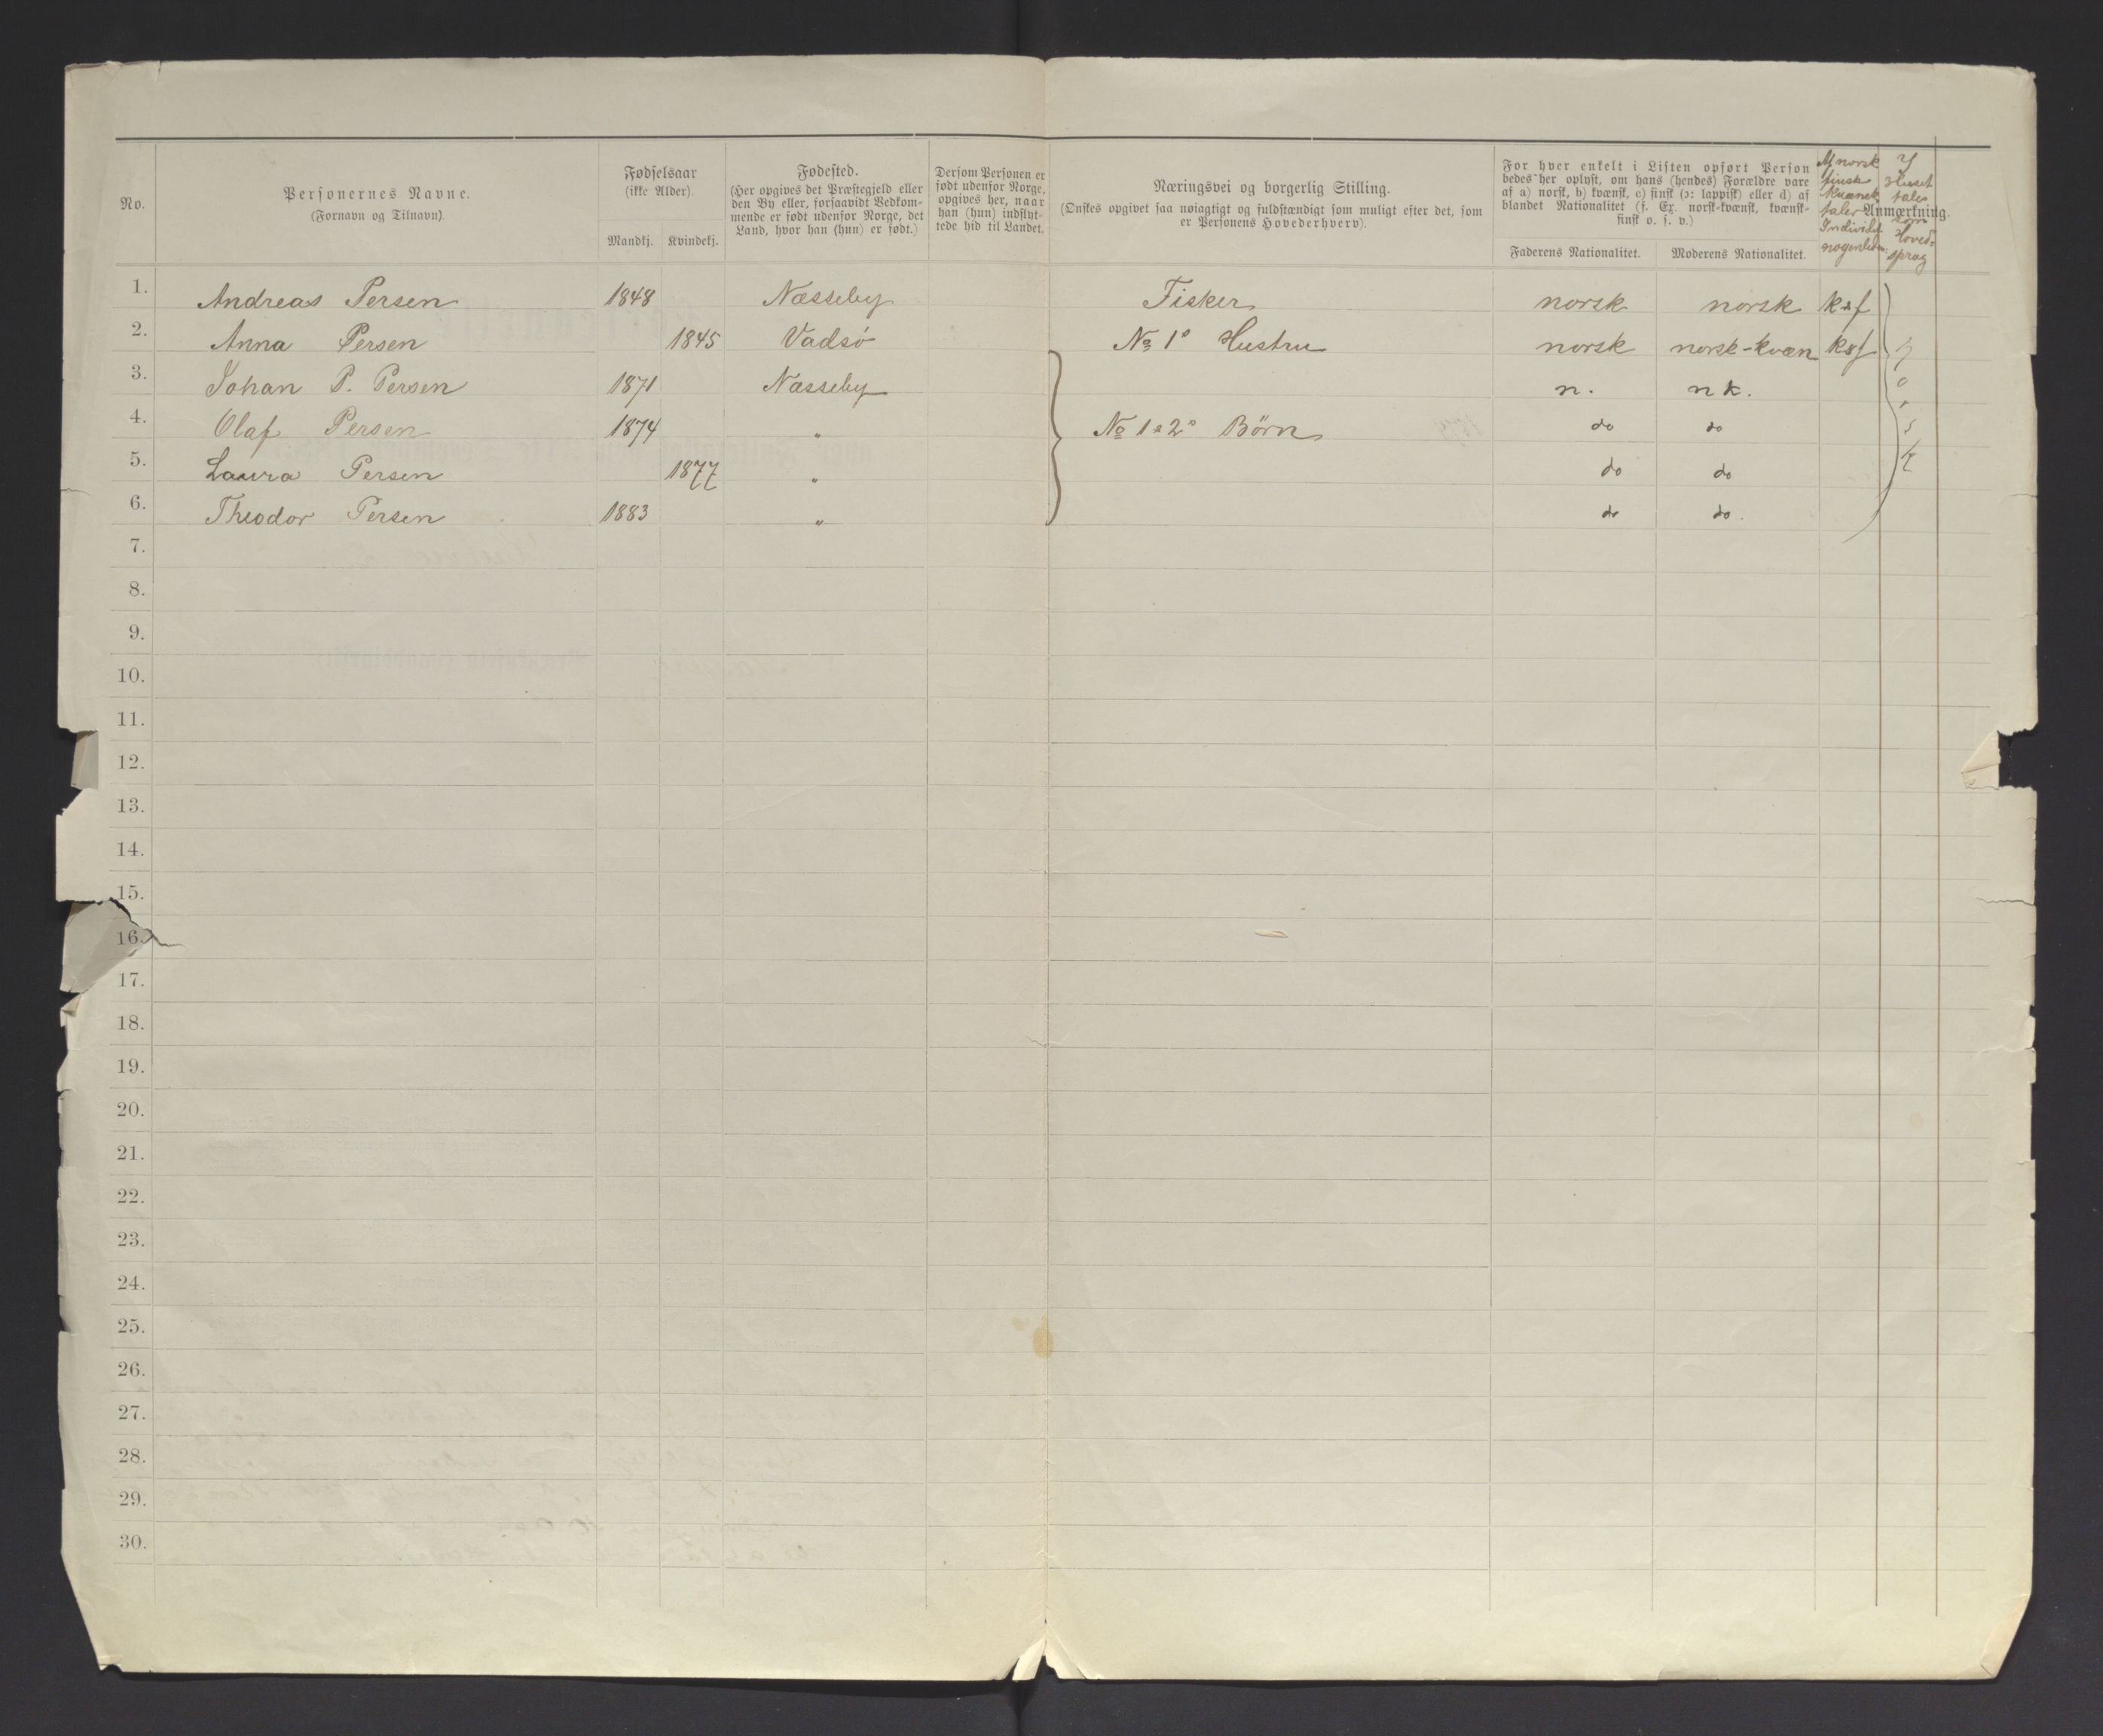 No.
Personernes Navne.
(Fornavn og Tilnavn).
Fødselsaar
(ikke Alder).
Mandkj. Kvindekj.
Fødested.
(Her opgives det Præstegjeld eller
den By eller, forsaavidt Vedkom-
mende er født udenfor Norge, det
Land, hvor han (hun) er født.)
Dersom Personen er
født udenfor Norge,
opgives her, naar
han (hun) indflyt-
tede hid til Landet.
Næringsvei og borgerlig Stilling.
(Ønskes opgivet saa nøiagtigt og fuldstændigt som muligt efter det, som
er Personens Hovederhverv).
For hver enkelt i Listen opført Person
bedes her oplyst, om hans (hendes) Forældre vare
af a) norsk, b) kvænsk, c) finsk (ɔ: lappisk) eller d) af
blandet Nationalitet (f. Ex. norsk-kvænsk, kvænsk-
finsk o. s. v.)
Faderens Nationalitet. Moderens Nationalitet.
Af norsk
finsk
Kvænsk
taler
Individet
nogenledes:
Anmærkning.
I
Huset
tales
som
Hoved-
sprog
1. Andreas Persen 1848 Næsseby Fisker norsk norsk k & f
2. Anna Persen 1845 Vadsø No 1s Hustru norsk norsk-kvæn k & f
3. Johan P. Persen 1871 Næsseby n. n k.
4. Olaf Persen 1874 " No 1 & 2s Børn do do
5. Laura Persen 1877 " do do
6. Theodor Persen 1883 " do do.
norsk
7.
8.
9.
10.
11.
12.
13.
14.
15.
16.
17.
18.
19.
20.
21.
22.
23.
24.
25.
26.
27.
28.
29.
30.